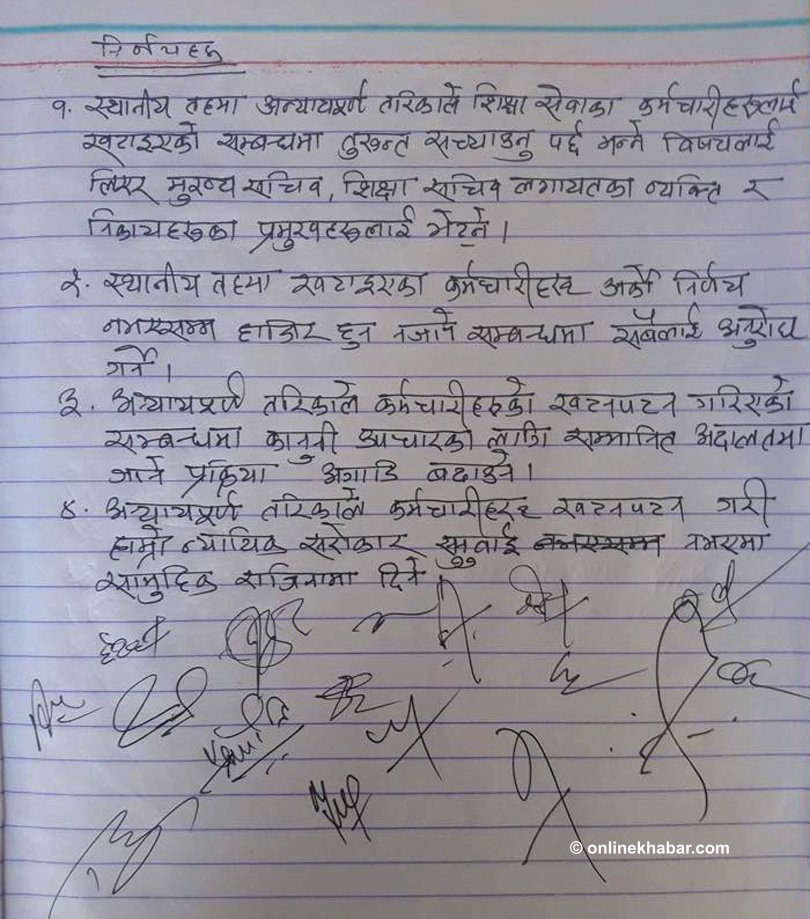 निर्णयहरु
१. स्थानीय तहमा अन्यायपूर्ण तरिकाले शिक्षा सेवाका कर्मचारीहरुलाई
खटाइएको सम्बन्धमा तुरुन्त सच्याउनु पर्छ भन्ने विषयलाई
लिएर मुख्य सचिव, शिक्षा सचिव लगायतका व्यक्ति र
निकायहरुका प्रमुखहरुलाई भेट्ने।
२. स्थानीय तहमा खटाइएका कर्मचारीहरु अर्को निर्णय
नभएसम्म हाजिर हुन नजाने सम्बन्धमा सबैलाई अनुरोध
गर्ने।
३. अन्यायपूर्ण तरिकाले कर्मचारीहरुको खटनपटन गरिएको
सम्बन्धमा कानूनी उपचारको लागि सम्मानित अदालतमा
जाने प्रक्रिया अगाडि बढाउने।
४. अन्यायपूर्ण तरिकाले कर्मचारीहरु खटनपटन गरी
हाम्रो न्यायिक सरोकार सुनुवाई नभएमा
सामुहिक राजिनामा दिने
© onlinekhabar.com